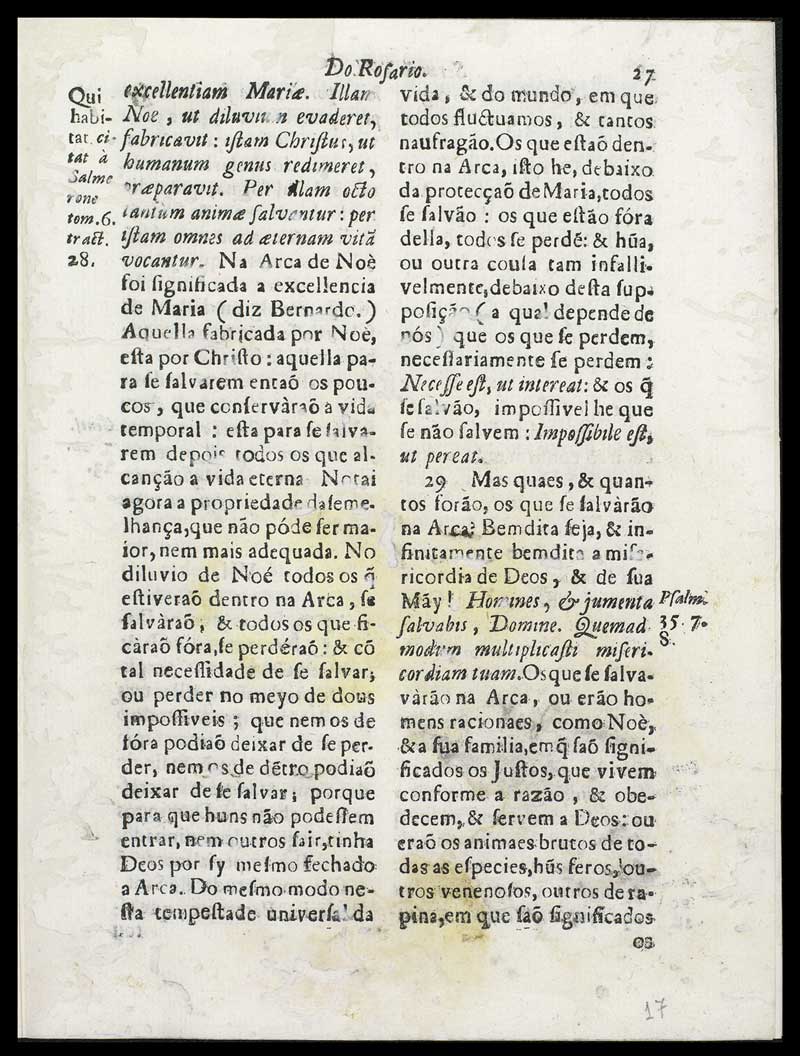 Do Rosario.
27
Qui
habi-
tat ci-
tat à
Salme
rone
tom.6.
tract.
28.
excellentiam Mariæ. Illam
Noe, ut diluviũ n evaderet,
fabricavit: iſtam Chriſtus, ut
humanum genus redimeret,
præparavit. Per illam octo
tantum animæ ſalventur: per
iſtam omnes ad æternam vitã
vocantur. Na Arca de Noè
foi ſignificada a excellencia
de Maria (diz Bernardo.)
Aquella fabricada por Noè,
eſta por Chriſto: aquella pa-
ra ſe ſalvarem entaõ os pou-
cos, que conſervàraõ a vida
temporal: eſta para ſe ſalva-
rem depois todos os que al-
canção a vida eterna. Notai
agora a propriedade da ſeme-
lhança, que não póde ſer ma-
ior, nem mais adequada. No
diluvio de Noé todos os q̃
eſtiveraõ dentro na Arca, ſe
ſalvàraõ, & todos os que fi-
càraõ fóra, ſe perdéraõ: & cõ
tal neceſſidade de ſe ſalvar,
ou perder no meyo de dous
impoſſiveis; que nem os de
fóra podiaõ deixar de ſe per-
der, nem os de dẽtro podiaõ
deixar de ſe ſalvar; porque
para que huns não podeſſem
entrar, nem outros ſair, tinha
Deos por ſy meſmo fechado
a Arca. Do meſmo modo ne-
ſta tempeſtade univerſal da
vida, & do mundo, em que
todos fluctuamos, & tantos
naufragão. Os que eſtaõ den-
tro na Arca, iſto he, debaixo
da protecçaõ de Maria, todos
ſe ſalvão: os que eſtão fóra
della, todos ſe perdẽ: & hũa,
ou outra couſa tam infalli-
velmente, debaixo deſta ſup-
poſição (a qual depende de
nós) que os que ſe perdem,
neceſſariamente ſe perdem:
Neceſſe eſt, ut intereat: & os q̃
ſe ſalvão, impoſſivel he que
ſe não ſalvem: Impoſſibile eſt,
ut pereat.
29 Mas quaes, & quan-
tos forão, os que ſe ſalvàrão
na Arca? Bemdita ſeja, & in-
finitamente bemdita a miſe-
ricordia de Deos, & de ſua
Mãy! Homines, & jumenta
ſalvabis, Domine. Quemad
modum multiplicaſti miſeri
cordiam tuam. Os que ſe ſalva-
vàrão na Arca, ou erão ho-
mens racionaes, como Noè,
& a ſua familia, em q̃ ſaõ ſigni-
ficados os Juſtos, que vivem
conforme a razão, & obe-
decem, & ſervem a Deos: ou
eraõ os animaes brutos de to-
das as eſpecies, hũs feros, ou-
tros venenoſos, outros de ra-
pina, em que ſaõ ſignificados
os
Pſalm.
35. 7.
8.
17